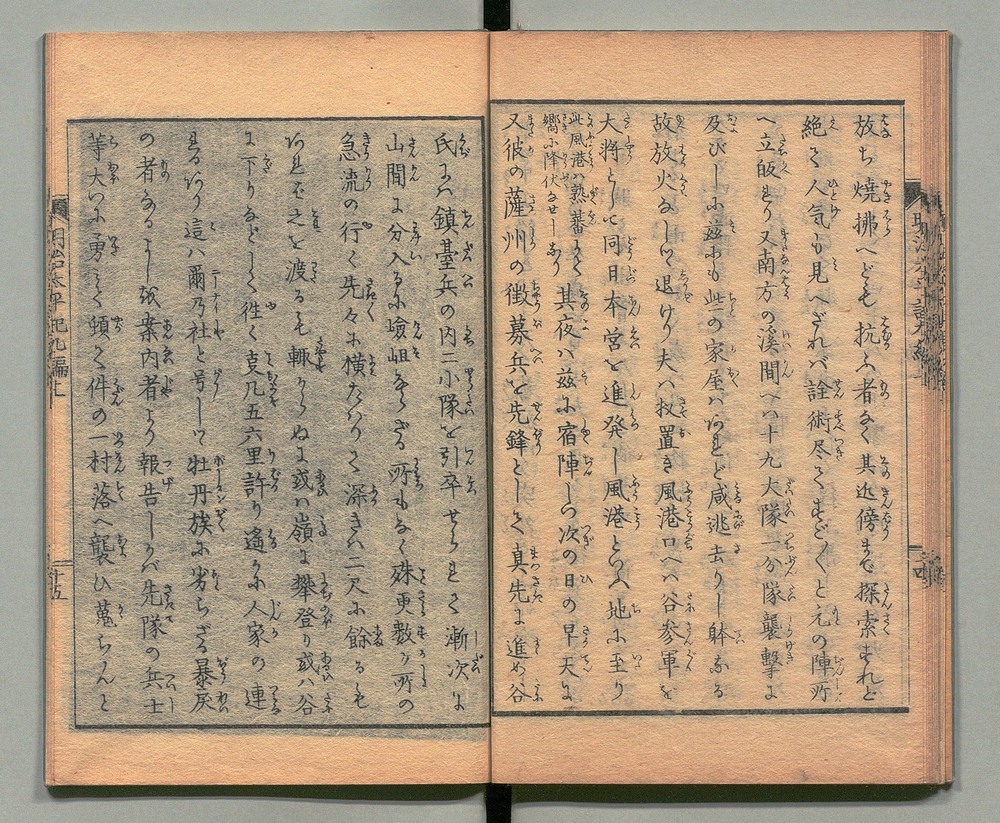 放ち燒拂へども抗ふ者なく其近傍まで探索すれど
絶て人気も見へざれバ詮術尽てすご〱と元の陣所
へ立皈れり又南方の溪間へハ十九大隊一分隊襲撃に
及びしに茲にも些の家屋ハあれど咸逃去りし躰なる
故放火なして退けり夫ハ扨置き風港口へハ谷参軍を
大将として同日本営を進発し風港といふ地に至り
此風港ハ熟蕃にて
嚮に降伏なせしなり
其夜ハ茲に宿陣しつ次の日の早天に
又彼の薩州の徴募兵を先鋒として真先に進め谷
氏ハ鎮臺兵の内二小隊を引卒せられて漸次に
山間に分入るに嶮岨ならざる所もなく殊更数ヶ所の
急流の行く先々に横たハりて深きハ二尺に餘るも
あれど之を渡るも輙からぬに或ハ嶺に攀登り或ハ谷
に下りなどして徃く㕝凡五六里許り遙に人家の連
るあり這ハ爾乃社と号して牡丹族に劣らざる暴戻
の者なるよし案内者より報告しかバ先隊の兵士
等大に勇て頓て件の一村落へ襲ひ蒐らんと
明治太平記九編上
十五